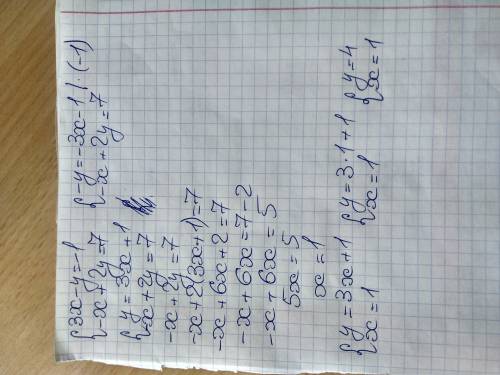 {3x-y=-1 {-y=-3x-1 | · (-1)
{-x+2y=7 {-x+2y=7
{y=3x+1
{-x+2y=7
-x+2y=7
-x+2(3x+1)=7
-x+6x+2=7
-x+6x=7-2
-x+6x=5
5x=5
x=1
{y=3x+1 {y=3·1+1 {y=4
{x=1 {x=1 {x=1